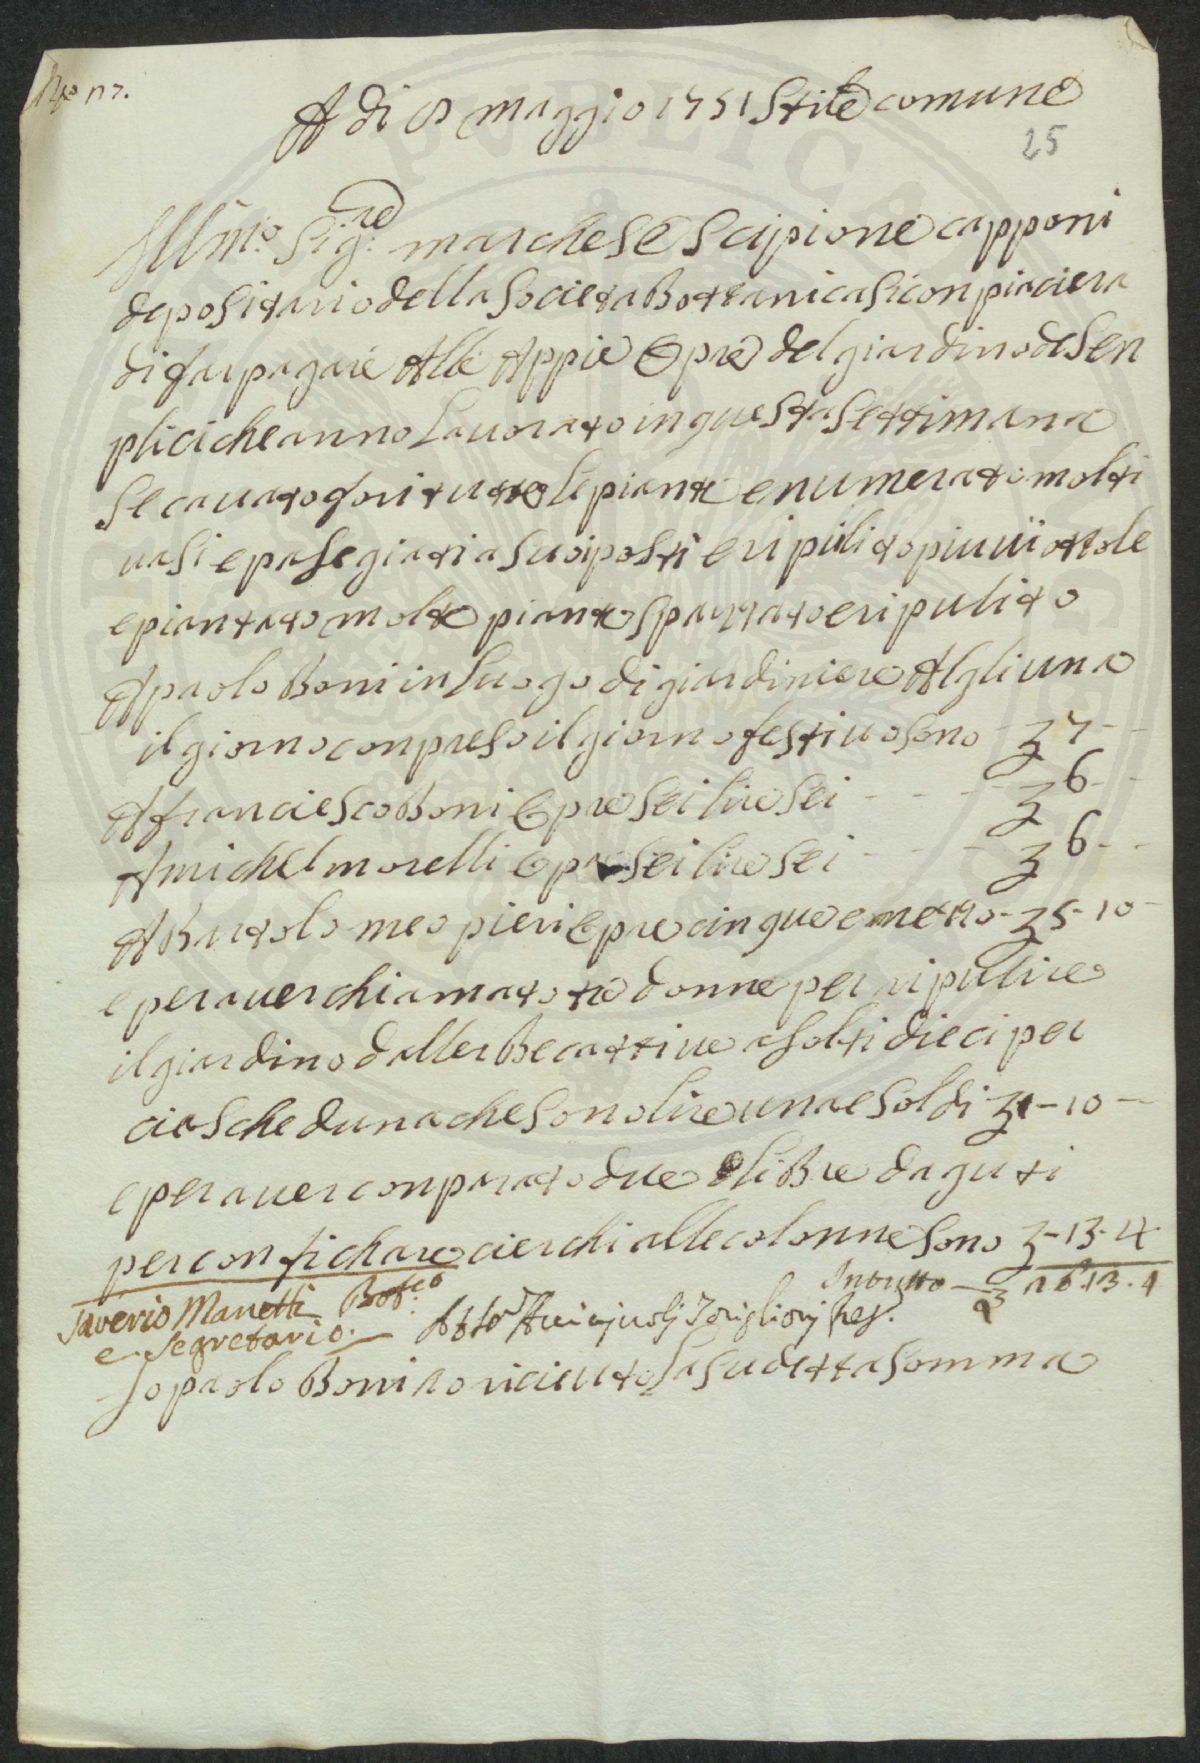 N.º 17.
A di 8 maggio 1751 Stile comune
25
Illmo. Sigre. marchese Scipione capponi
depositario della Società Bottanica si conpiaciera
di far pagare Alle Appie Opre del giardino de Sen
plici che anno Lauorato in questa settimana
Se cauato fori tutte le piante e numerato molti
uasi e pasegiati a suoi posti e ripulito piu uiottole
e piantato molte piante spazzato e ripulito
A paolo Boni in Luogo di giardiniere Al gli una
il giorno conpreso il giorno festiuo sono £ 7 - -
A franciesco Boni Opre sei lire sei - - - - £ 6 - -
A michel morelli Opre sei lire sei - - - £ 6 - -
A Bartolomeo pieri Opre cinque e mezzo - £ 5 - 10 -
e per auer chiamato tre donne per ripulire
il giardino dall erbe cattiue a solti dieci per
ciascheduna che sono lire una e soldi £ 1 - 10 -
e per auer conparato due libre daguti
per confichare cierchi alle colonne sono £ - 13 - 4
In tutto - £ 26.13.4
Saverio Manetti Botco.
e Segretario. -
Io paolo Boni o riceuto La sudetta somma